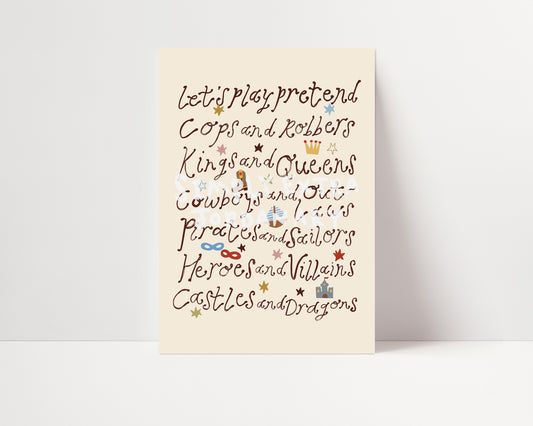 Let's play pretend
Cops and Robbers
Kings and Queens
Cowboys and Out-
laws
Pirates and Sailors
Heroes and Villains
Castles and Dragons